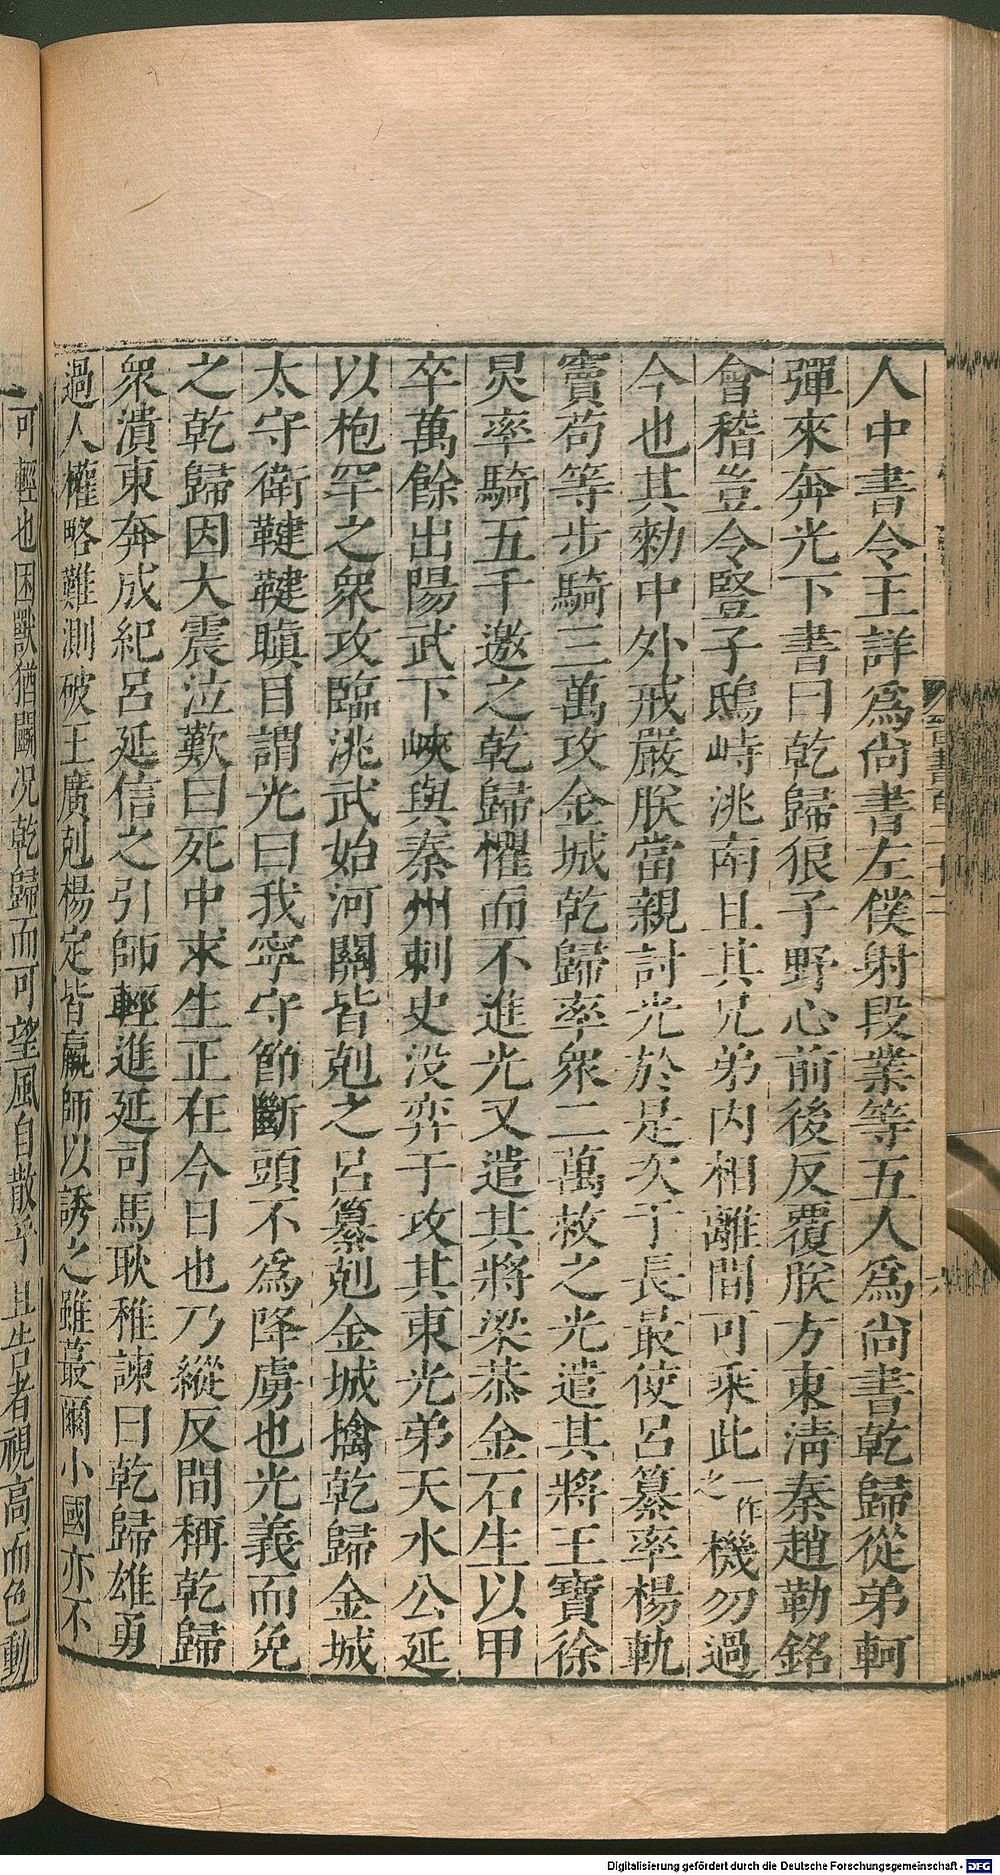 人中書令王詳爲尚書左僕射段業等五人爲尚書乾歸從弟軻
彈來奔光下書曰乾歸狠子野心前後反覆朕方東清秦趙勒銘
會稽豈令豎子鴟峙洮南且其兄弟內相離間可乘此一作之機勿過
今也其勑中外戒嚴朕當親討光於是次于長最使呂纂率楊軌
竇苟等步騎三萬攻金城乾歸率衆二萬救之光遣其將王寶徐
炅率騎五千邀之乾歸懼而不進光又遣其將梁恭金石生以甲
卒萬餘出陽武下峽與秦州刺史没弈于攻其東光弟天水公延
以枹罕之衆攻臨洮武始河關皆剋之呂纂剋金城擒乾歸金城
太守衛鞬鞬瞋目謂光曰我寧守節斷頭不爲降虜也光義而免
之乾歸因大震泣歎曰死中求生正在今日也乃縱反間稱乾歸
衆潰東奔成紀呂延信之引師輕進延司馬耿稚諫曰乾歸雄勇
過人權略難測破王廣剋楊定皆羸師以誘之雖蕞爾小國亦不
可輕也困獸猶鬭況乾歸而可望風自散乎且告者視高而色動
Digitalisierung gefördert durch die Deutsche Forschungsgemeinschaft - DFG